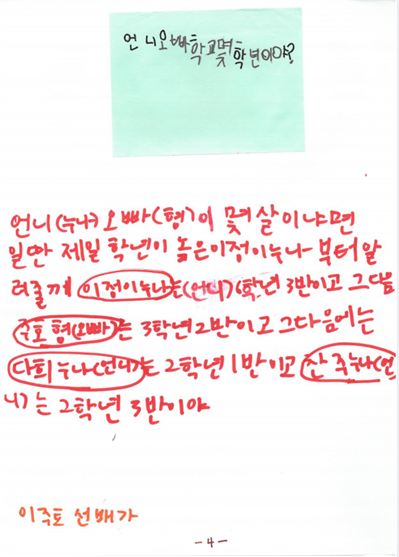 언니오빠학교몇학년이야?
언니(누나)오빠(형)이 몇살이냐면
일단 제일 학년이 높은이정이누나 부터알
려줄께 이정이누나는(언니) 학년 3반이고 그다음
주호 형(오빠)는 3학년2반이고그다음에는
다희누나(언니)는 2학년1반이고 잔 죽누나(언
니)는 2학년 3반이야
이주호 선배가
-4-